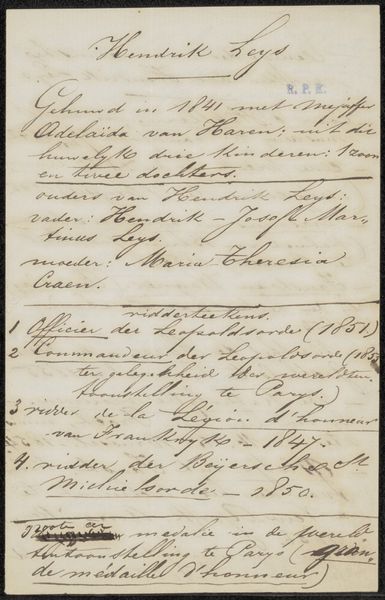 Hendrik Leys
R.P.K.
Gehuwd in 1841 met mejuffer
Adelaïda van Haren; uit dit
huwelyk drie kinderen: 1 zoon
en twee dochters.
ouders van Hendrik Leys:
vader: Hendrik – Josef Mar-
tinus Leys.
moeder: Maria Theresia
Craen.
ridderteekens.
1 Officier der Leopoldsorde (1851)
2 Commandeur der Leopoldsorde (185
ter gelegenheid der wereldten
toonstelling te Parys.)
3 ridder de la Légion d'honneur
van Frankryk – 1847.
4. ridder der Beijersche St
Michielsorde – 1850.
groote der medalie in de wereld
tentoonstelling te Parys (gran-
de médaille d'honneur)